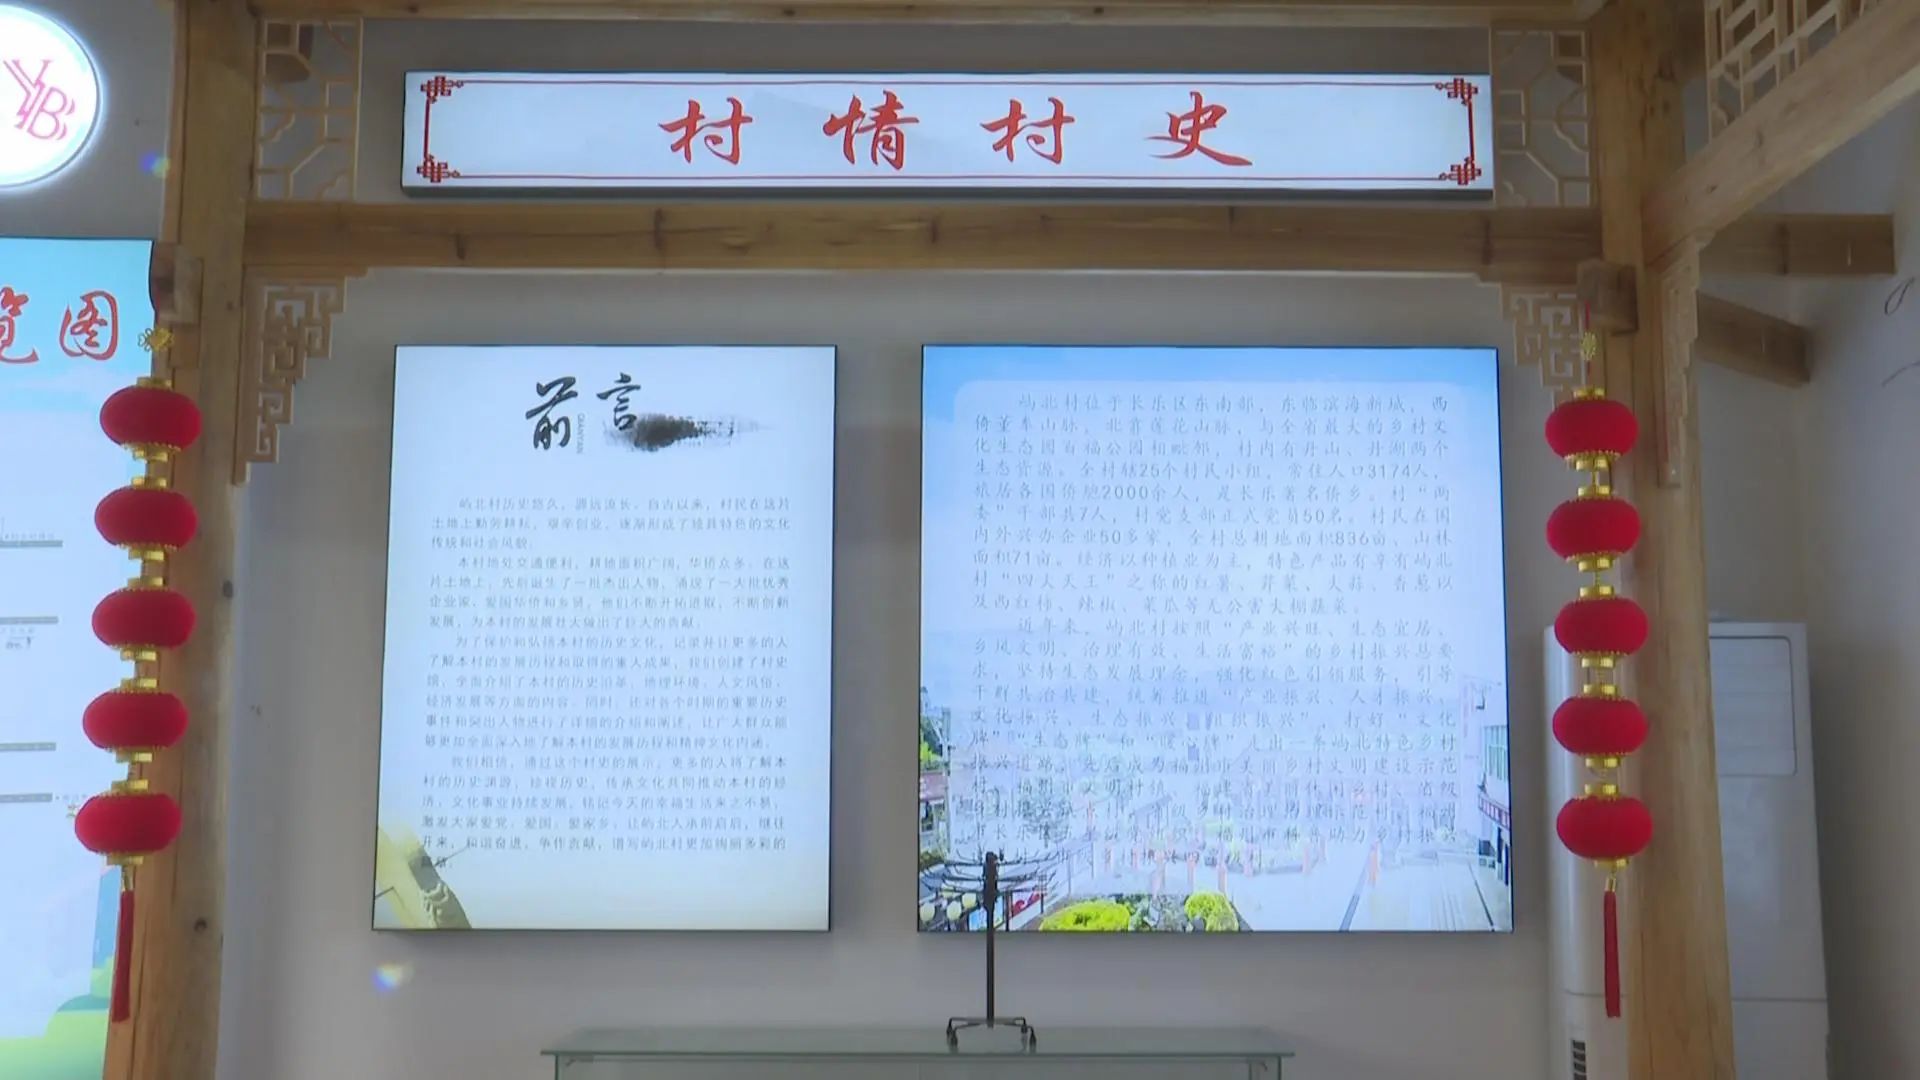 YB
村情村史
览图
前言
QIANYAN
屿北村历史悠久，源远流长。自古以来，村民在这片
土地上勤劳耕耘，艰辛创业，逐渐形成了独具特色的文化
传统和社会风貌。
本村地处交通便利，耕地面积广阔，华侨众多。在这
片土地上，先后诞生了一批杰出人物，涌现了一大批优秀
企业家、爱国华侨和乡贤，他们不断开拓进取，不断创新
发展，为本村的发展壮大做出了巨大的贡献。
为了保护和弘扬本村的历史文化，记录并让更多的人
了解本村的发展历程和取得的重大成果，我们创建了村史
馆，全面介绍了本村的历史沿革、地理环境、人文风俗、
经济发展等方面的内容。同时，还对各个时期的重要历史
事件和突出人物进行了详细的介绍和阐述，让广大群众能
够更加全面深入地了解本村的发展历程和精神文化内涵。
我们相信，通过这个村史的展示，更多的人将了解本
村的历史渊源，珍视历史，传承文化共同推动本村的经
济、文化事业持续发展，铭记今天的幸福生活来之不易，
激发大家爱党、爱国、爱家乡，让屿北人承前启后，继往
开来，和谐奋进，争作贡献，谱写屿北村更加绚丽多彩的
屿北村位于长乐区东南部，东临滨海新城，西
倚董奉山脉，北靠莲花山脉，与全省最大的乡村文
化生态园百福公园相毗邻，村内有丹山、丹湖两个
生态资源。全村辖25个村民小组，常住人口3174人，
旅居各国侨胞2000余人，是长乐著名侨乡。村“两
委”干部共7人，村党支部正式党员50名。村民在国
内外兴办企业50多家，全村总耕地面积836亩、山林
面积71亩。经济以种植业为主，特色产品有享有屿北
村“四大天王”之称的红薯、芹菜、大蒜、香葱以
及西红柿、辣椒、菜瓜等无公害大棚蔬菜。
近年来，屿北村按照“产业兴旺、生态宜居、
乡风文明、治理有效、生活富裕”的乡村振兴总要
求，坚持生态发展理念，强化红色引领服务，引导
干群共治共建，统筹推进“产业振兴、人才振兴、
文化振兴、生态振兴、组织振兴”，打好“文化
牌”“生态牌”和“暖心牌”走出一条屿北特色乡村
振兴道路，先后成为福州市美丽乡村文明建设示范
村、福州市文明村镇、福建省美丽休闲乡村、省级
乡村振兴试点村，省级乡村治理治理示范村、福州
市长乐区五星级党组织、福州市科普助力乡村振兴